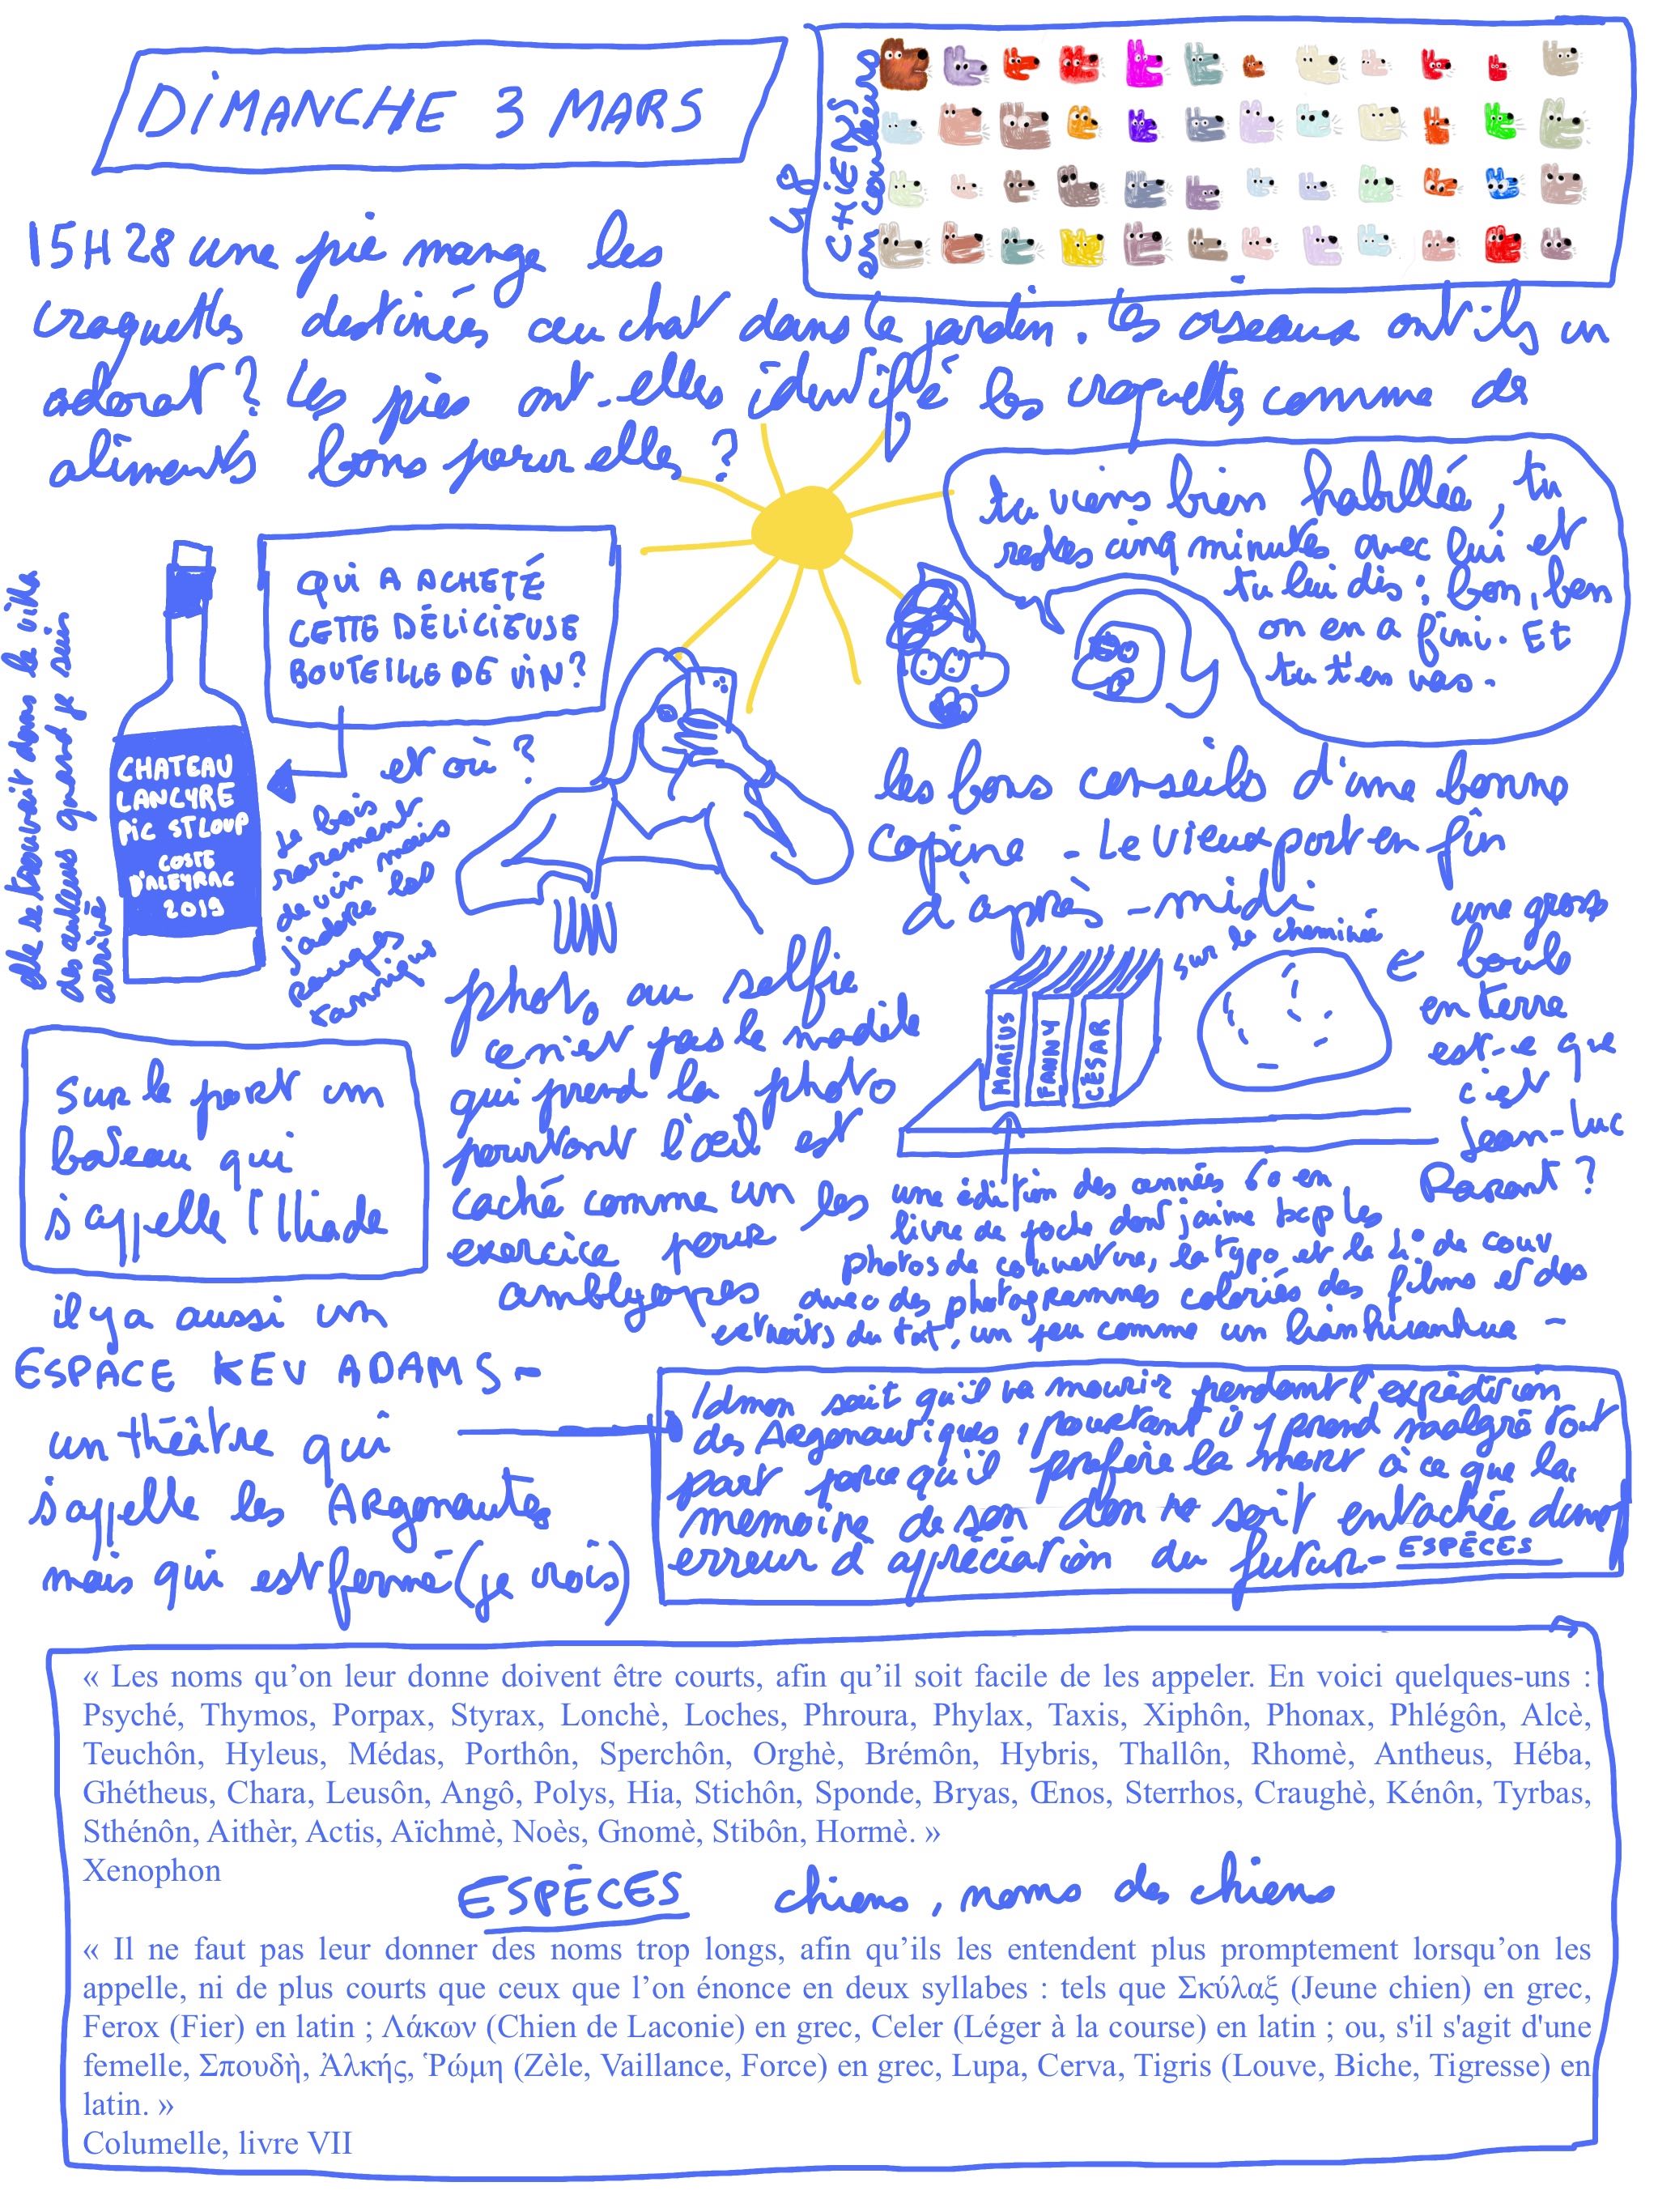 DIMANCHE 3 MARS
48
CHIENS
en couleurs
15H28 une pie mange les
craquettes destinées au chat dans le jardin. Les oiseaux ont-ils un
odorat ? Les pies ont-elles identifié les croquettes comme de
aliments bons pour elles ?
tu viens bien habillée, tu
restes cinq minutes avec lui et
tu lui dis : bon, ben
on en a fini. Et
tu t'en vas.
QUI A ACHETÉ
CETTE DÉLICIEUSE
BOUTEILLE DE VIN ?
et où ?
elle se trouvait dans la villa
des auteurs quand je suis
arrivée
CHATEAU
LANCYRE
PIC ST LOUP
COSTE
D'ALEYRAC
2019
Je bois
rarement
de vin mais
j'adore les
rouges
tanniques
les bons conseils d'une bonne
copine - Le vieux port en fin
d'après-midi
photo au selfie
ce n'est pas le modèle
qui prend la photo
pourtant l'œil est
caché comme un
exercice pour les
amblyopes
sur la cheminée
MARIUS
FANNY
CÉSAR
une grosse
boule
en terre
est-ce que
c'est
Jean-Luc
Parant ?
une édition des années 60 en
livre de poche dont j'aime bcp les
photos de couverture, la typo et la 4° de couv
avec des photogrammes coloriés des films et des
extraits du txt, un peu comme un
Sur le port un
bateau qui
s'appelle l'Iliade
il y a aussi un
ESPACE KEV ADAMS -
un théâtre qui
s'appelle les ARgonautes
mais qui est fermé (je crois)
Idmon sait qu'il va mourir pendant l'expédition
des Argonautiques, pourtant il y prend malgré tout
part parce qu'il préfère la mort à ce que la
memoire de son don ne soit entachée d'une
erreur d'appréciation du futur - ESPÈCES
« Les noms qu’on leur donne doivent être courts, afin qu’il soit facile de les appeler. En voici quelques-uns :
Psyché, Thymos, Porpax, Styrax, Lonchè, Loches, Phroura, Phylax, Taxis, Xiphôn, Phonax, Phlégôn, Alcè,
Teuchôn, Hyleus, Médas, Porthôn, Sperchôn, Orghè, Brémôn, Hybris, Thallôn, Rhomè, Antheus, Héba,
Ghétheus, Chara, Leusôn, Angô, Polys, Hia, Stichôn, Sponde, Bryas, Œnos, Sterrhos, Craughè, Kénôn, Tyrbas,
Sthénôn, Aithèr, Actis, Aïchmè, Noès, Gnomè, Stibôn, Hormè. »
Xenophon
ESPÈCES chiens, noms des chiens
« Il ne faut pas leur donner des noms trop longs, afin qu’ils les entendent plus promptement lorsqu’on les
appelle, ni de plus courts que ceux que l’on énonce en deux syllabes : tels que Σκύλαξ (Jeune chien) en grec,
Ferox (Fier) en latin ; Λάκων (Chien de Laconie) en grec, Celer (Léger à la course) en latin ; ou, s'il s'agit d'une
femelle, Σπουδὴ, Ἀλκής, Ῥώμη (Zèle, Vaillance, Force) en grec, Lupa, Cerva, Tigris (Louve, Biche, Tigresse) en
latin. »
Columelle, livre VII